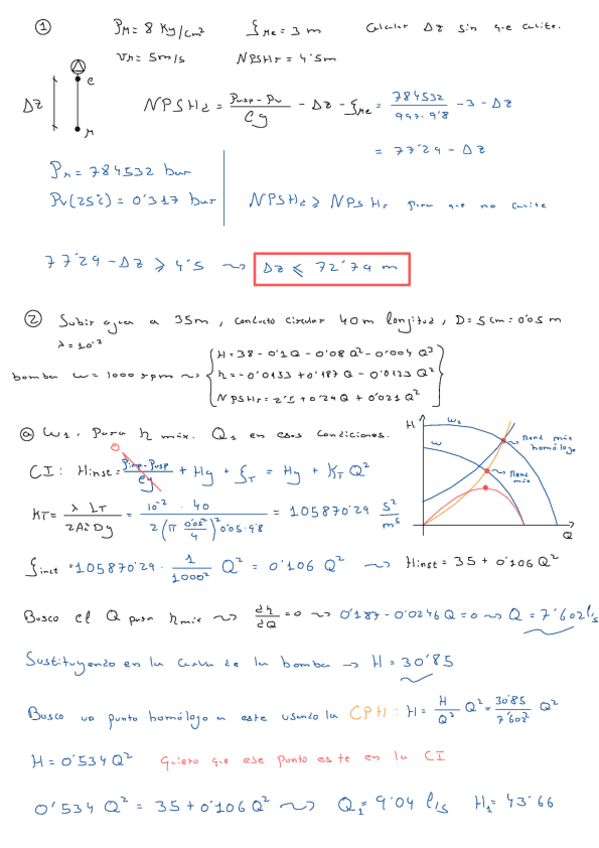 ① P_M = 8 Kg/cm² ξ_Me = 3 m Calcular ΔZ sin que cavite.
V_M = 5m/s NPSHr = 4'5m
ΔZ e M NPSHd = (Pasp - Pv)/ρg - ΔZ - ξ_Me = 784532/(997·9'8) - 3 - ΔZ
= 77'29 - ΔZ
P_M = 784532 bar
Pv(25º) = 0'317 bar NPSHd ≥ NPSHr para que no cavite
77'29 - ΔZ ≥ 4'5 ⇝ ΔZ ≤ 72'79 m
② Subir agua a 35m, conducto circular 40m longitud, D = 5cm = 0'05 m
λ = 10⁻²
bomba ω = 1000 rpm ⇝ { H = 38 - 0'1Q - 0'08 Q² - 0'004 Q³
η = -0'0133 + 0'187 Q - 0'0123 Q²
NPSHr = 2'1 + 0'24 Q + 0'021 Q²
ⓐ ω₁. Para η máx. Q₁ en esas condiciones.
H ω₁ ω Rend máx homólogo Rend máx Q
CI: Hinst = (Pimp - Pasp)/ρg 0 + Hg + ξ_T = Hg + K_T Q²
K_T = λ L_T / 2A²Dg = 10⁻² · 40 / 2(π 0'05²/4)² 0'05·9'8 = 105870'29 s²/m⁵
ξinst = 105870'29 · 1/1000² Q² = 0'106 Q² ⇝ Hinst = 35 + 0'106 Q²
Busco el Q para η máx ⇝ dη/dQ = 0 ⇝ 0'187 - 0'0246 Q = 0 ⇝ Q = 7'602 l/s
Sustituyendo en la curva de la bomba → H = 30'85
Busco un punto homólogo a este usando la CPH: H = H/Q² Q² = 30'85/7'602² Q²
H = 0'534 Q² Quiero que ese punto este en la CI
0'534 Q² = 35 + 0'106 Q² ⇝ Q₁ = 9'04 l/s H₁ = 43'66